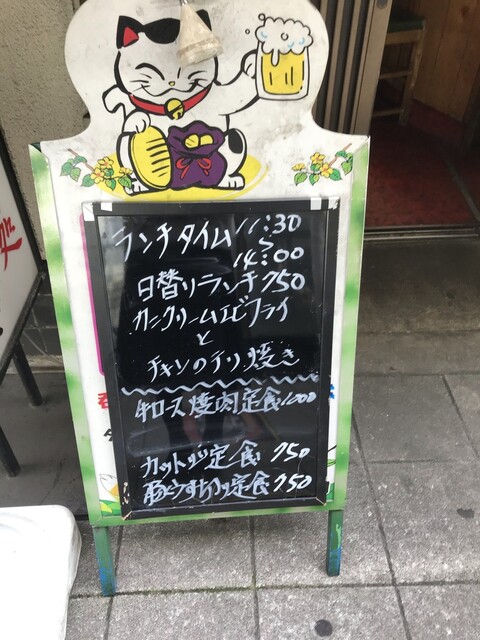 ランチタイム 11:30
〜
14:00
日替りランチ 750
カニクリームエビフライ
と
チキンのテリ焼き
牛ロース焼肉定食 1000
定食 750
豚うす切り定食 750
処